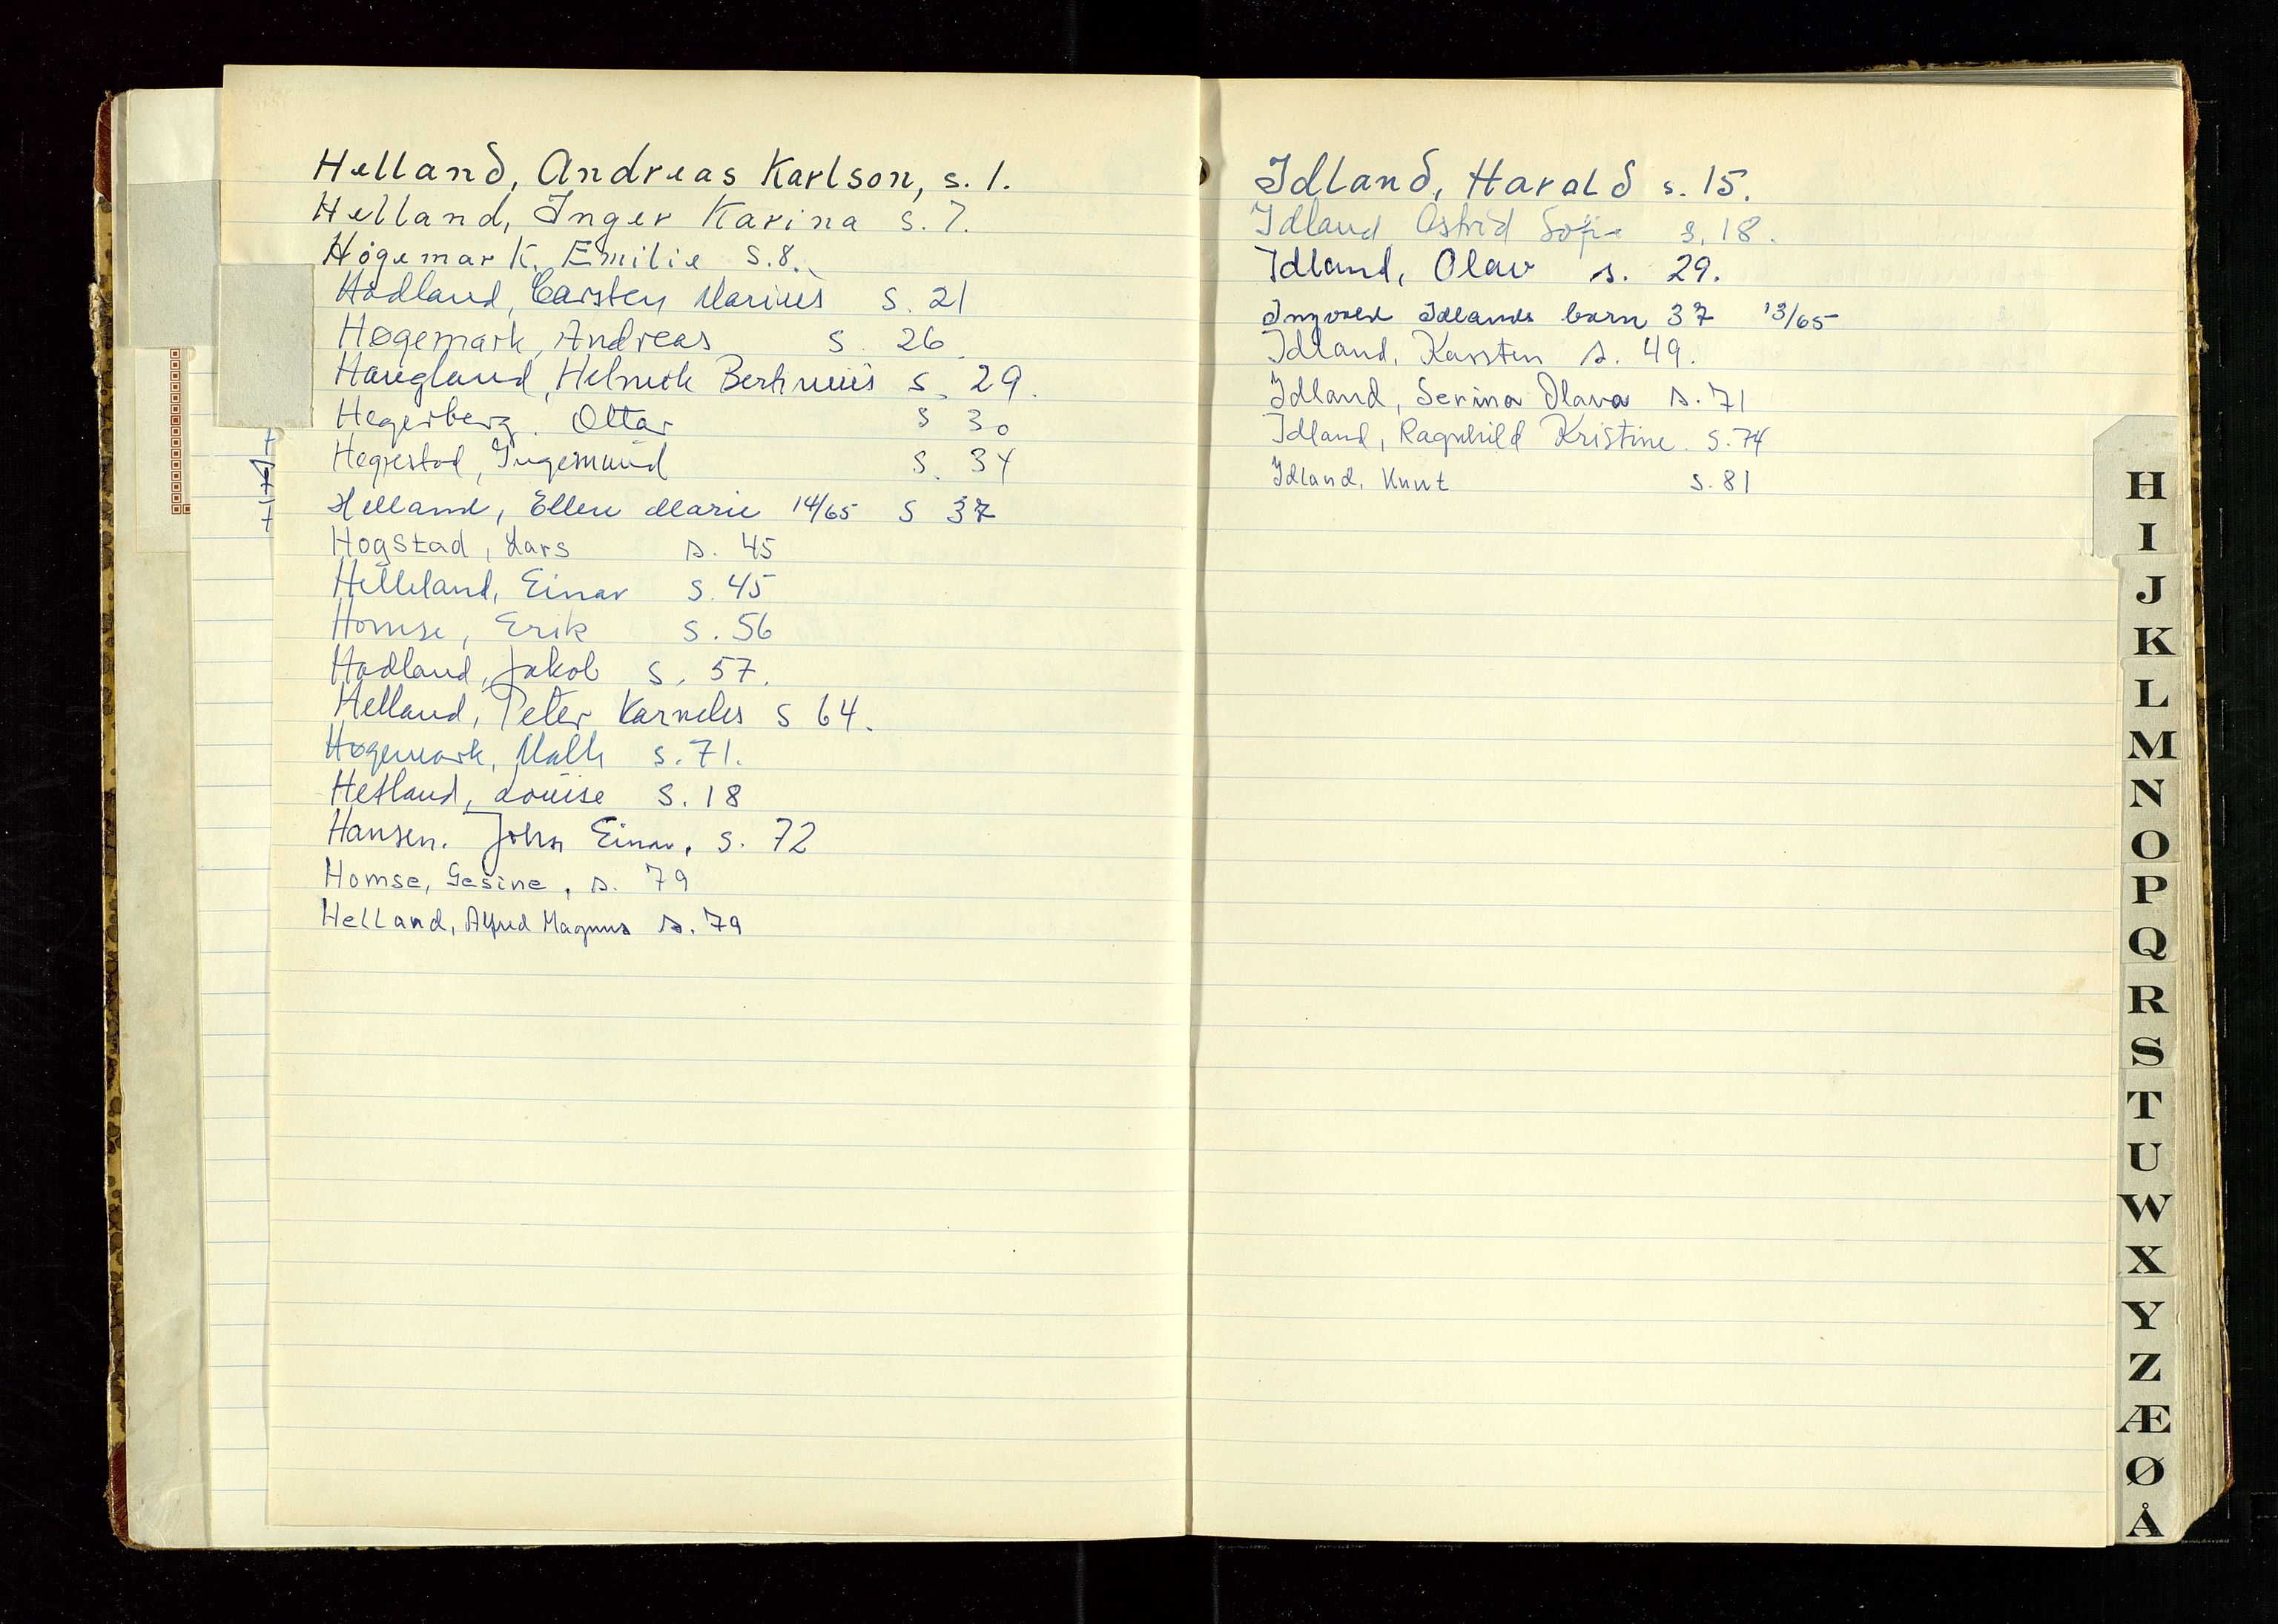 Helland, Andreas Karlson, s. 1.
Helland, Inger Karina s. 7.
Høgemark, Emilie s. 8.
Hadland, Carsten Marius s. 21
Høgemark, Andreas s. 26.
Haugland, Helmik Berhinius s. 29.
Hegerberg. Ottar s 30
Hegrestad, Ingemund s. 34
Helland, Ellen Marie 14/65 s 37
Hogstad, Lars s. 45
Helleland, Einar s. 45
Homse, Erik s. 56
Hadland, Jakob s. 57.
Helland, Peter Karneles s 64.
Høgemark, Malli s. 71.
Hetland, Louise s. 18
Hansen. John Einar, s. 72
Homse, Gesine, s. 79
Helland, Alfred Magnus s. 79
Idland, Harald s. 15.
Idland Astrid Sofie s. 18.
Idland, Olav s. 29.
Ingvald Idlands barn 37 13/65
Idland, Karsten s. 49.
Idland, Serina Olava s. 71
Idland, Ragnhild Kristine. s. 74
Idland, Knut s. 81
H
I
J
K
L
M
N
O
P
Q
R
S
T
U
W
X
Y
Z
Æ
Ø
Å